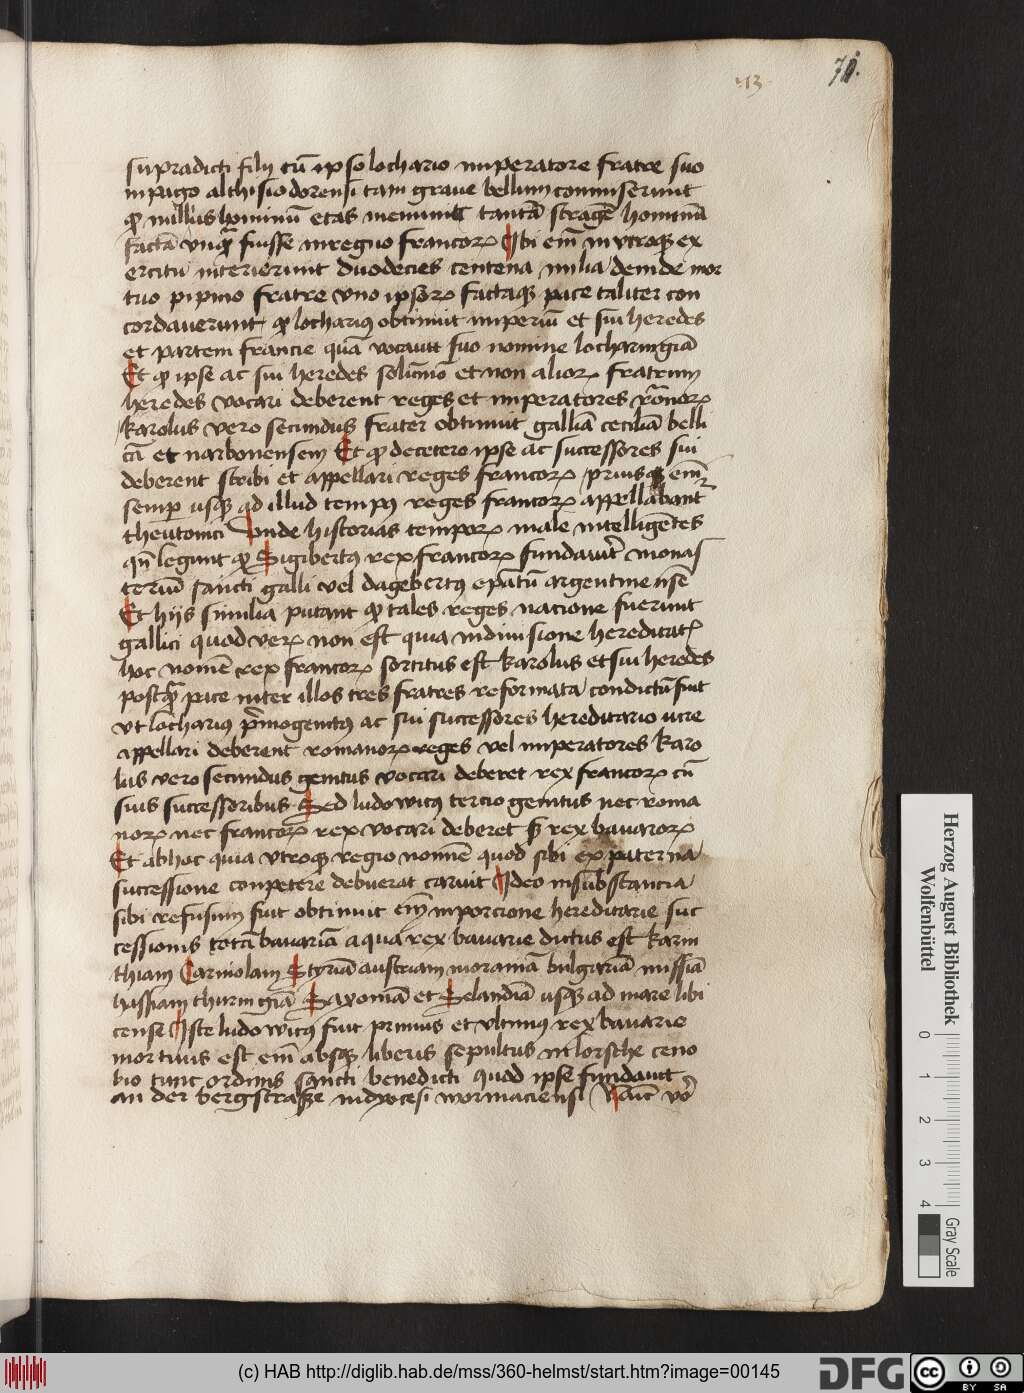 71.
43
supradicti filij cū ipso lothario imperatore fratre suo
in pago althisiodorensi tam graue bellum commiserunt
qꝫ nullius hominū etas meminit tantā stragē hominū
factā vnqꝫ fuisse in regno francorꝫ Ibi em̄ in vtroqꝫ ex
ercitu interierunt duodecies centena milia deinde mor
tuo pipino fratre vno ipsorꝫ factaqꝫ pace taliter con
cordauerunt qꝫ lotharius obtinuit imperiū et sui heredes
et partem francie quā vocauit suo nomine lotharingiā
Et qꝫ ipse ac sui heredes solūmō et non aliorꝫ fratrum
heredes vocari deberent reges et imperatores rōnorꝫ
karolus vero secundus frater obtinuit galliā ceciliā belli
cā et narbonensem Et qꝫ de cetero ipse ac successores sui
deberent scribi et appellari reges francorꝫ prius em̄
semp̄ usqꝫ ad illud tempus reges francorꝫ appellabant᷑
theutonici Vnde historias temporꝫ male intelligētes
qn̄ legunt qꝫ Sigibertus rex francorꝫ fundauit monas
teriū sancti galli vel dagebertus epatū argentinensē
Et hijs similia putant qꝫ tales reges nacione fuerunt
gallici quod verꝫ non est quia in diuisione hereditatꝫ
hoc nomē rex francorꝫ sortitus est karolus et sui heredes
postqꝫ pace inter illos tres fratres reformata condictū fuit
vt lotharius primogenitus ac sui successores hereditario iure
appellari deberent romanorꝫ reges vel imperatores karo
lus vero secundus genitus vocari deberet rex francorꝫ cū
suis successoribus Sed ludowicus tercio genitus nec roma
norꝫ nec francorꝫ rex vocari deberet sꝫ rex bauarorꝫ
Et ab hoc quia vtroqꝫ regio nomē quod sibi ex paterna
successione conpetere debuerat caruit Ideo in substancia
sibi refusum fuit obtinuit em̄ in porcione hereditarie suc
cessionis totā bauariā a qua rex bauarie dictus est karin
thiam Carniolam Styriā austriam morauiā bulgariā missiā
hassiam thuringiā Saxoniā et Selandiā usqꝫ ad mare libi
cense Iste ludowicus fuit primus et vltimus rex bauarie
mortuus est em̄ absqꝫ liberis sepultus in lorsche ceno
bio tunc ordinis sancti benedicti quod ipse fundauit
an der bergstrasse in dyocesi wormaciensi Vait vō
Herzog August Bibliothek
Wolfenbüttel
0 1 2 3 4
Gray Scale
(c) HAB http://diglib.hab.de/mss/360-helmst/start.htm?image=00145
DFG
cc BY SA